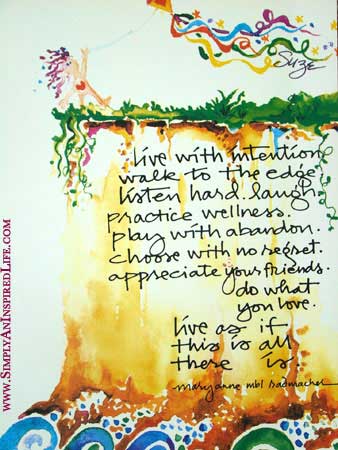 Suze
live with intention
walk to the edge
listen hard. laugh
practice wellness.
play with abandon.
choose with no regret.
appreciate your friends.
do what
you love.
live as if
this is all
there is
-maryanne mbl radmacher
www.SimplyAnInspiredLife.com